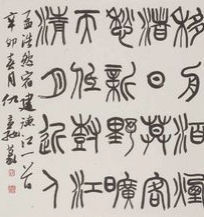 移舟泊煙
渚日暮客
愁新野曠
天低樹江
清月近人
孟浩然宿建德江一首
辛卯春月